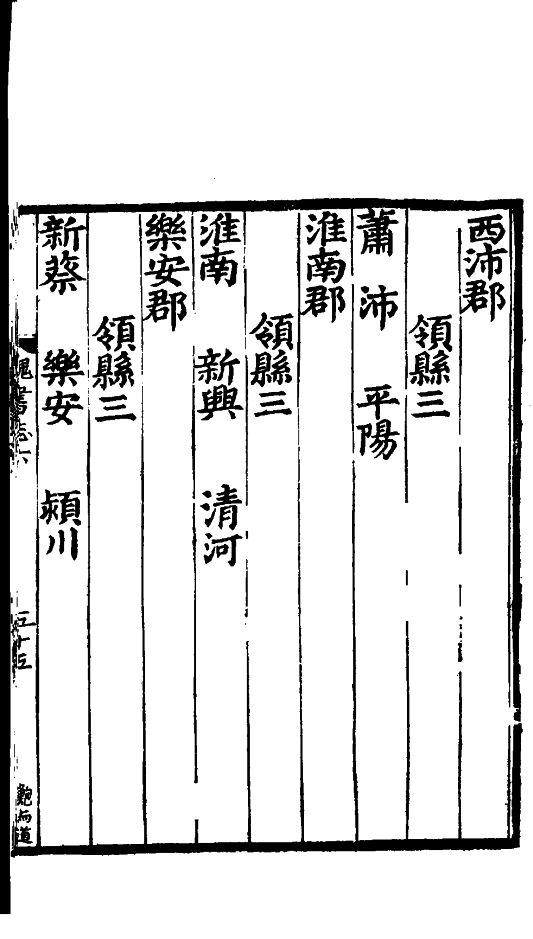 西沛郡
領縣三
蕭 沛 平陽
淮南郡
領縣三
淮南 新興 清河
樂安郡
領縣三
新蔡 樂安 潁川
魏書志六
五十五